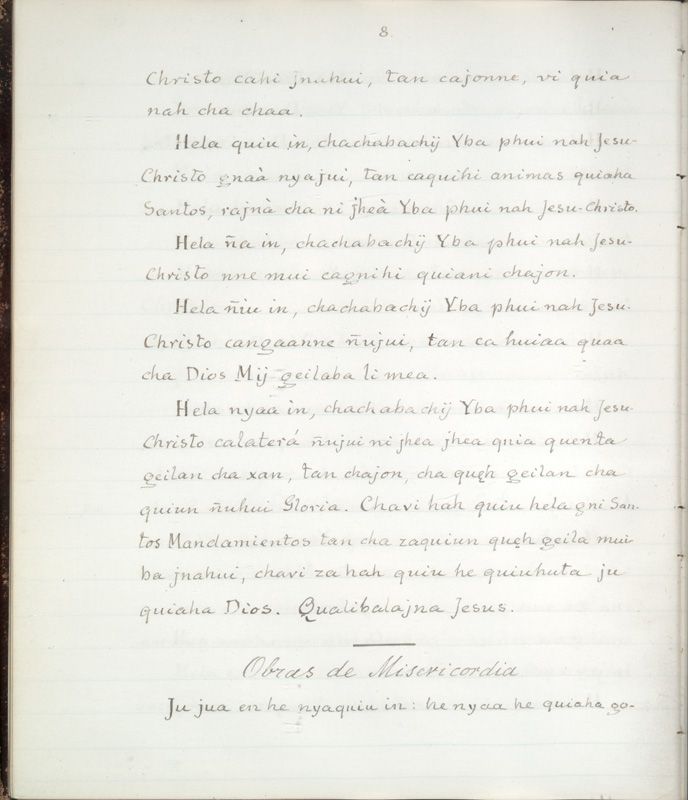 8.
Christo cahi jnahui, tan cajonne, vi quia
nah cha chaa.
Hela quiu in, chachabachij Yba phui nah Jesu-
Christo gnaà nyajui, tan caquihi animas quiaha
Santos, rajnà cha ni jheà Yba phui nah Jesu-Christo.
Hela ña in, chachabachij Yba phui nah Jesu-
Christo nne mui cagnihi quiani chajon.
Hela ñiu in, chachabachij Yba phui nah Jesu-
Christo cangaanne ñujui, tan ca huiaa quaa
cha Dios Mij geilaba li mea.
Hela nyaa in, chachabachij Yba phui nah Jesu-
Christo calaterá ñujui ni jhea jhea qnia quenta
geilan cha xan, tan chajon, cha quęh geilan cha
quiun ñuhui Gloria. Chavi hah quiu hela gni San-
tos Mandamientos tan cha zaquiun quęh geila mui
ba jnahui, chavi za hah quiu he quiuhuta ju
quiaha Dios. Qualibalajna Jesus.
Obras de Misericordia
Ju jua en he nyaquiu in: he nyaa he quiaha go-